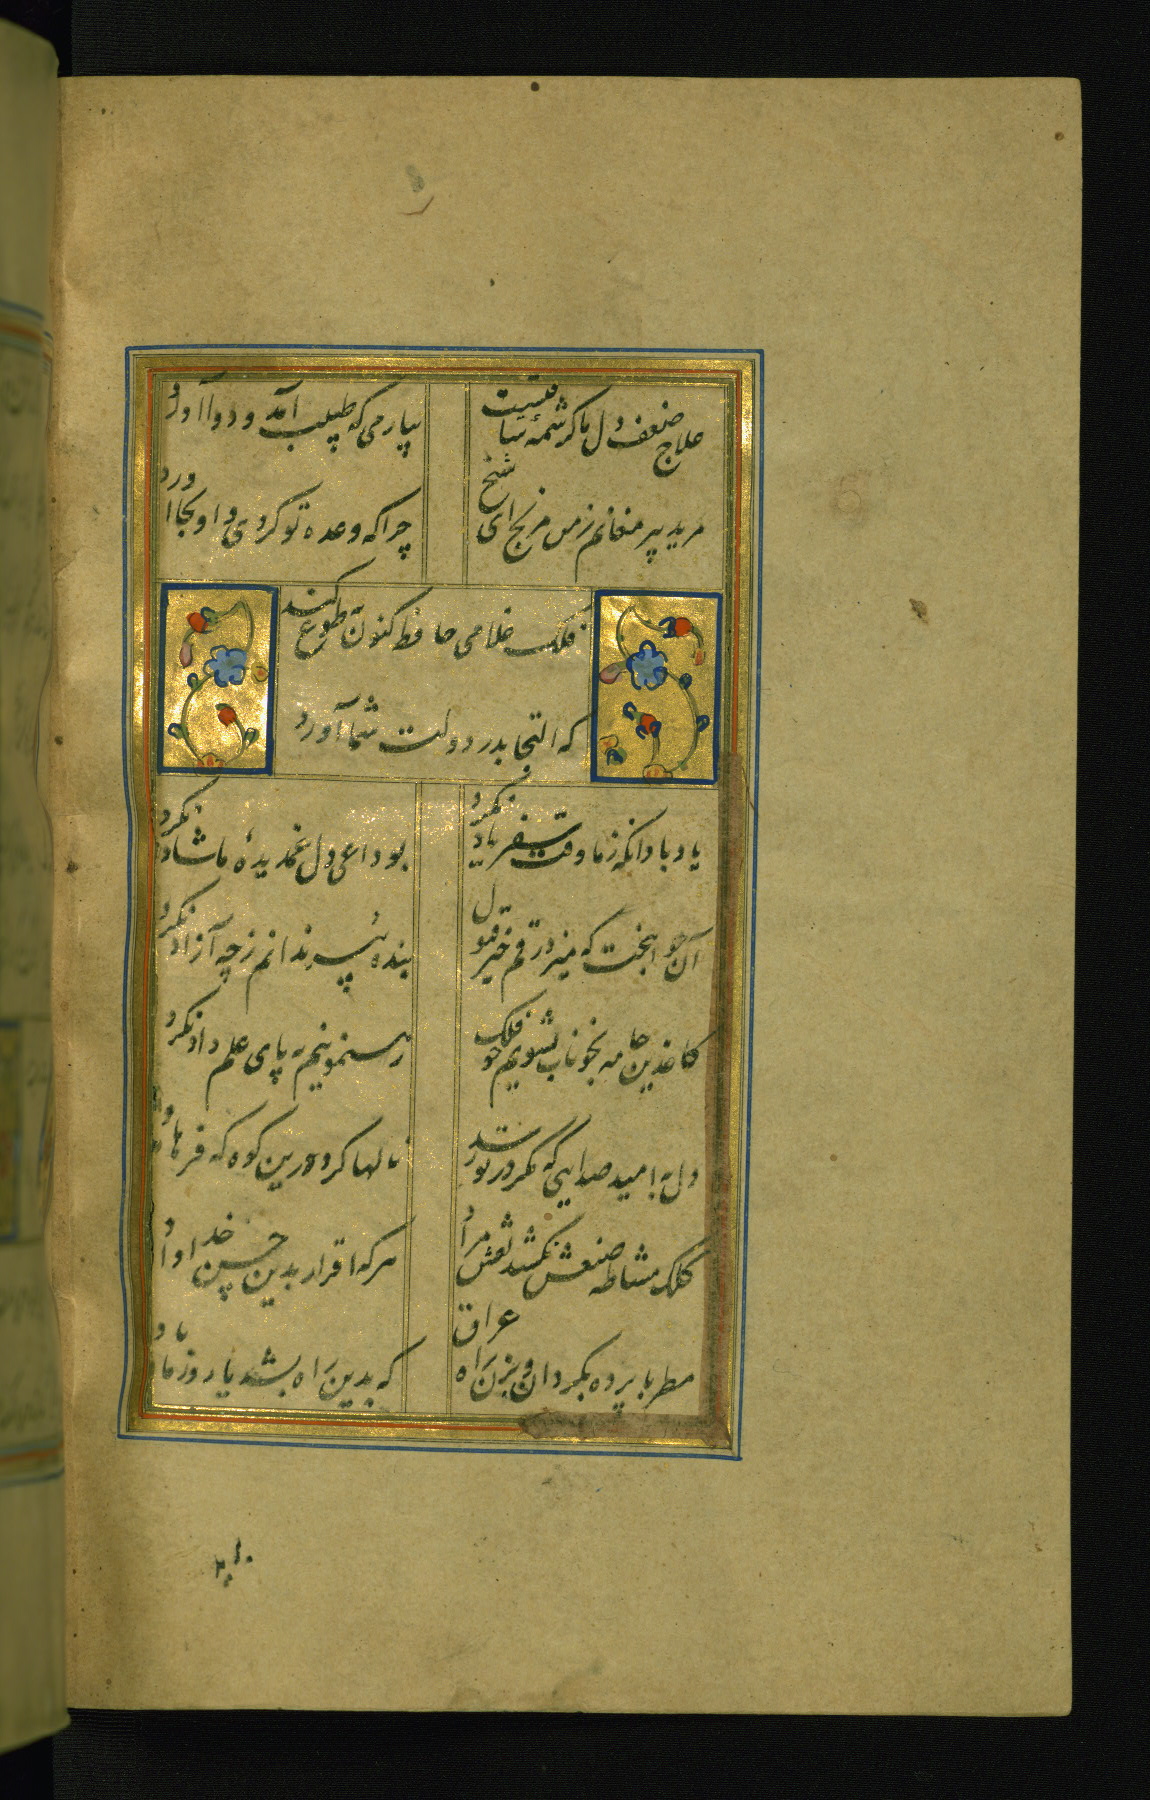 علاج ضعف دل ما کرشمهٔ ساقیست
بیار می که طبیب آمد و دوا آورد
مرید پیر مغانم ز من مرنج ای شیخ
چرا که وعده تو کردی و او بجا آورد
فلک غلامی حافظ کنون طوع کند
که التجا بدر دولت شما آورد
یاد باد انکه ز ما وقت سفر یاد نکرد
بوداعی دل غمدیدهٔ ما شاد نکرد
آن جوانبخت که میزد رقم خیر قبول
بنده پیر ندانم ز چه آزاد نکرد
کاغذین جامه بخوناب بشویم که فلک
رهنمونیم به پای علم داد نکرد
دل به امید صدایی که مگر در تو رسد
نالها کرد درین کوه که فرهاد
کلک مشاطه صنعش نکشد نقش مراد
هرکه اقرار بدین حسن خداداد
مطربا پرده بگردان و بزن راه عراق
که بدین راه بشد یار و ز ما یاد